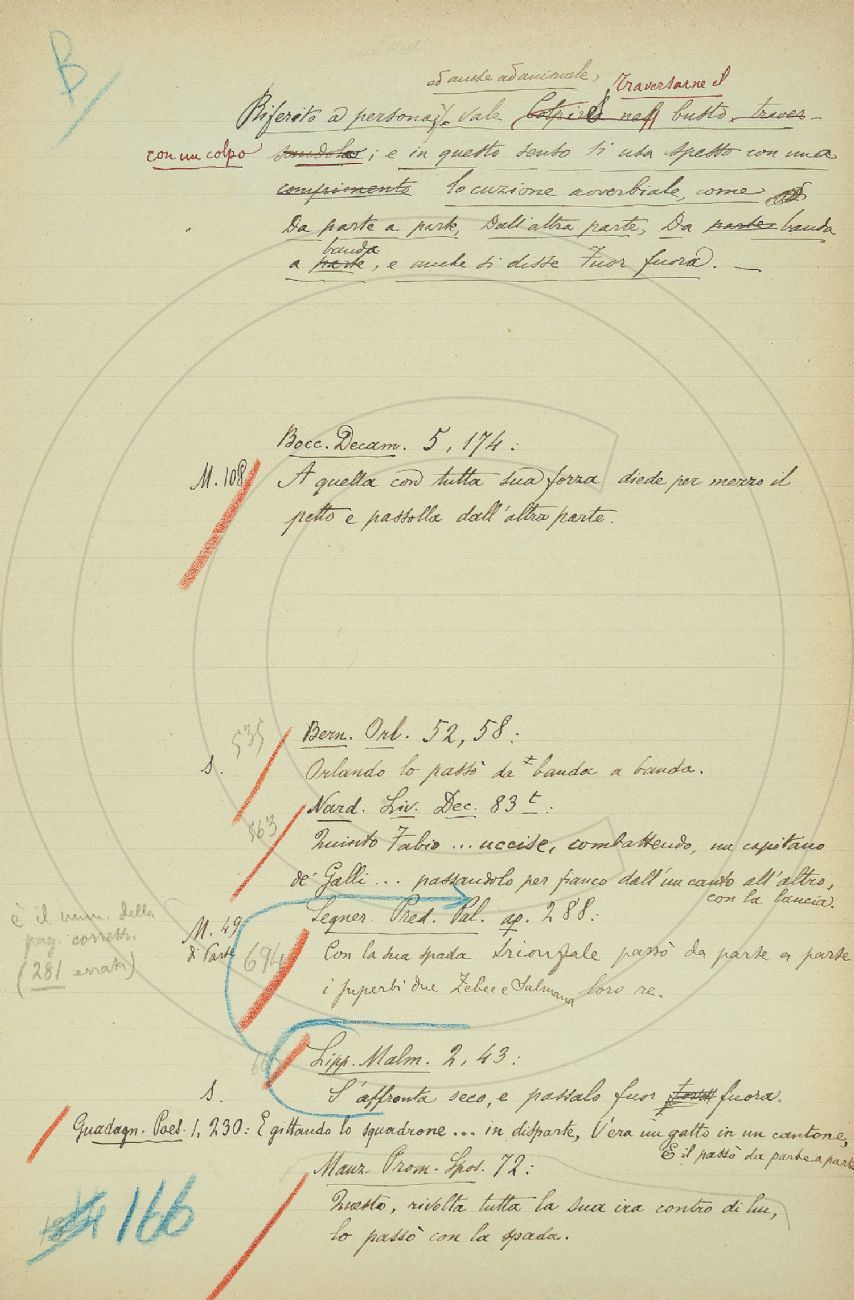 B
od anche ad animale,
Traversarne il
Riferito a persona, vale Colpirla nel busto, traver-
con un colpo sandola; e in questo senso si usa spesso con una
compimento locuzione avverbiale, come
Da parte a parte, Dall'altra parte, Da parte banda
banda
a parte, e anche si disse Fuor fuora. —
Bocc. Decam. 5, 174:
M. 108 A quella con tutta sua forza diede per mezzo il
petto e passolla dall'altra parte.
535 Bern. Orl. 52, 58:
S. Orlando lo passò da banda a banda.
563 Nard. Liv. Dec. 83 t:
Quinto Fabio ... uccise, combattendo, un capitano
de' Galli ... passandolo per fianco dall'un canto all'altro,
con la lancia.
Segner. Pred. Pal. ap. 288:
è il num. della
pag. corrett.
(281 errato)
M. 49
di Parte
694 Con la sua spada trionfale passò da parte a parte
i superbi due Zebee e Salmana loro re.
Lipp. Malm. 2, 43:
S. S'affronta seco, e passalo fuor fuora.
Guadagn. Poes. 1, 230: E gittando lo squadrone ... in disparte, V'era un gatto in un cantone,
E il passò da parte a parte
Manz. Prom. Spos. 72:
Questo, rivolta tutta la sua ira contro di lui,
lo passò con la spada.
166